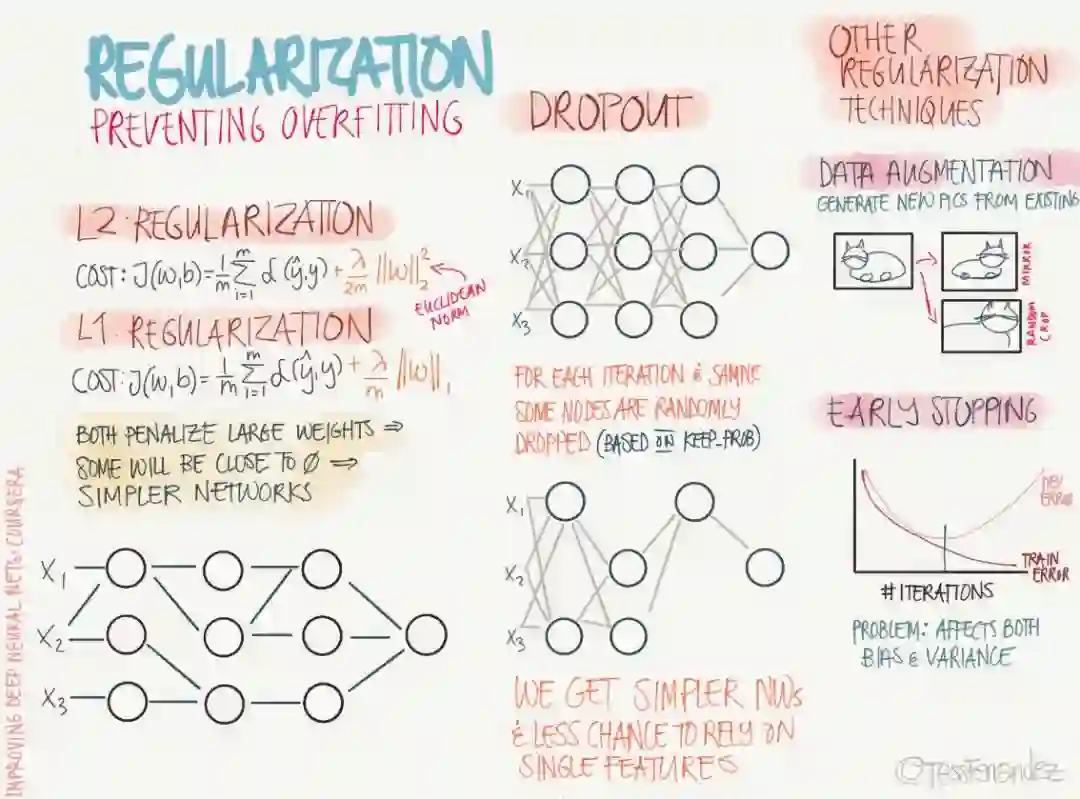 REGULARIZATION
PREVENTING OVERFITTING
L2 REGULARIZATION
COST: J(w,b) = 1/m Σ(i=1 to m) L(ŷ,y) + λ/2m ||w||₂²
EUCLIDEAN
NORM
L1. REGULARIZATION
COST: J(w,b) = 1/m Σ(i=1 to m) L(ŷ,y) + λ/m ||w||₁
BOTH PENALIZE LARGE WEIGHTS ⇒
SOME WILL BE CLOSE TO Ø ⇒
SIMPLER NETWORKS
X₁
X₂
X₃
IMPROVING DEEP NEURAL NETS: COURSERA
DROPOUT
X₁
X₂
X₃
FOR EACH ITERATION &
SOME NODES ARE RANDOMLY
DROPPED (BASED ON KEEP-PROB)
X₁
X₂
X₃
WE GET SIMPLER NWs
& LESS CHANCE TO RELY ON
SINGLE FEATURES
OTHER
REGULARIZATION
TECHNIQUES
DATA AUGMENTATION
GENERATE NEW PICS FROM EXISTING
MIRROR
RANDOM
CROP
EARLY STOPPING
DEV
ERROR
TRAIN
ERROR
# ITERATIONS
PROBLEM: AFFECTS BOTH
BIAS & VARIANCE
©TessFerrandez